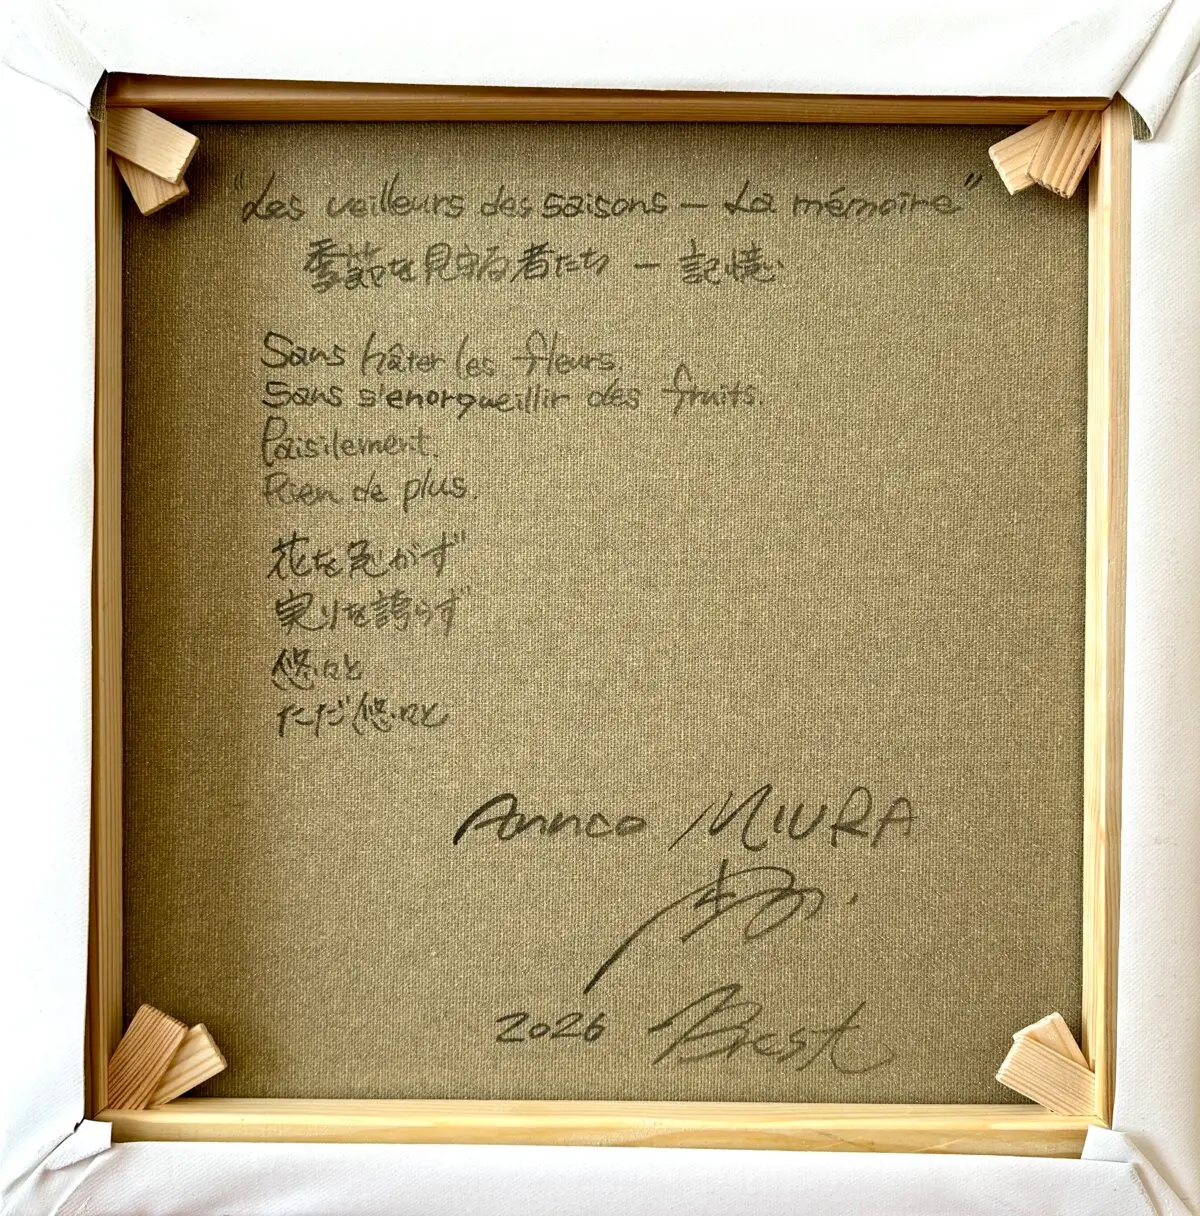 "Les veilleurs des saisons – La mémoire"
季節を見守る者たち – 記憶
Sans hâter les fleurs.
Sans s'enorgueillir des fruits.
Paisilement.
Rien de plus.
花を急がず
実りを誇らず
悠々と
ただ悠々と
Annco MIURA
2026 Brest